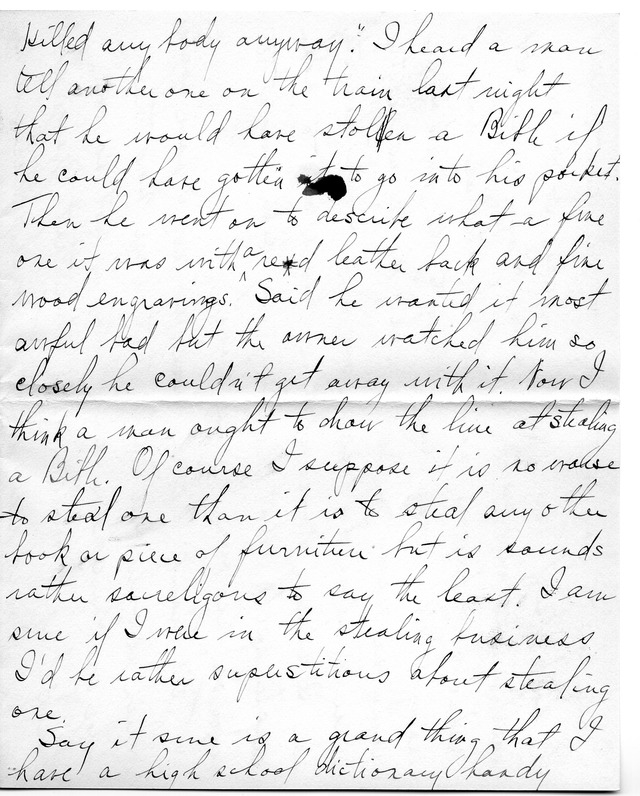 killed any body anyway." I heard a man
tell another one on the train last night
that he would have stollen a Bible if
he could have gotten it to go into his pocket.
Then he went on to describe what a fine
one it was with a red leather back and fine
wood engravings. Said he wanted it most
awful bad but the owner watched him so
closely he couldn't get away with it. Now I
think a man ought to draw the line at stealing
a Bible. Of course I suppose it is no worse
to steal one than it is to steal any other
book or piece of furniture but is sounds
rather sacreligous to say the least. I am
sure if I were in the stealing business
I'd be rather superstitious about stealing
one.
Say it sure is a grand thing that I
have a high school dictionary handy